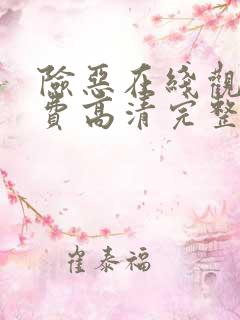 險惡在綫觀
費高清完整
崔泰福